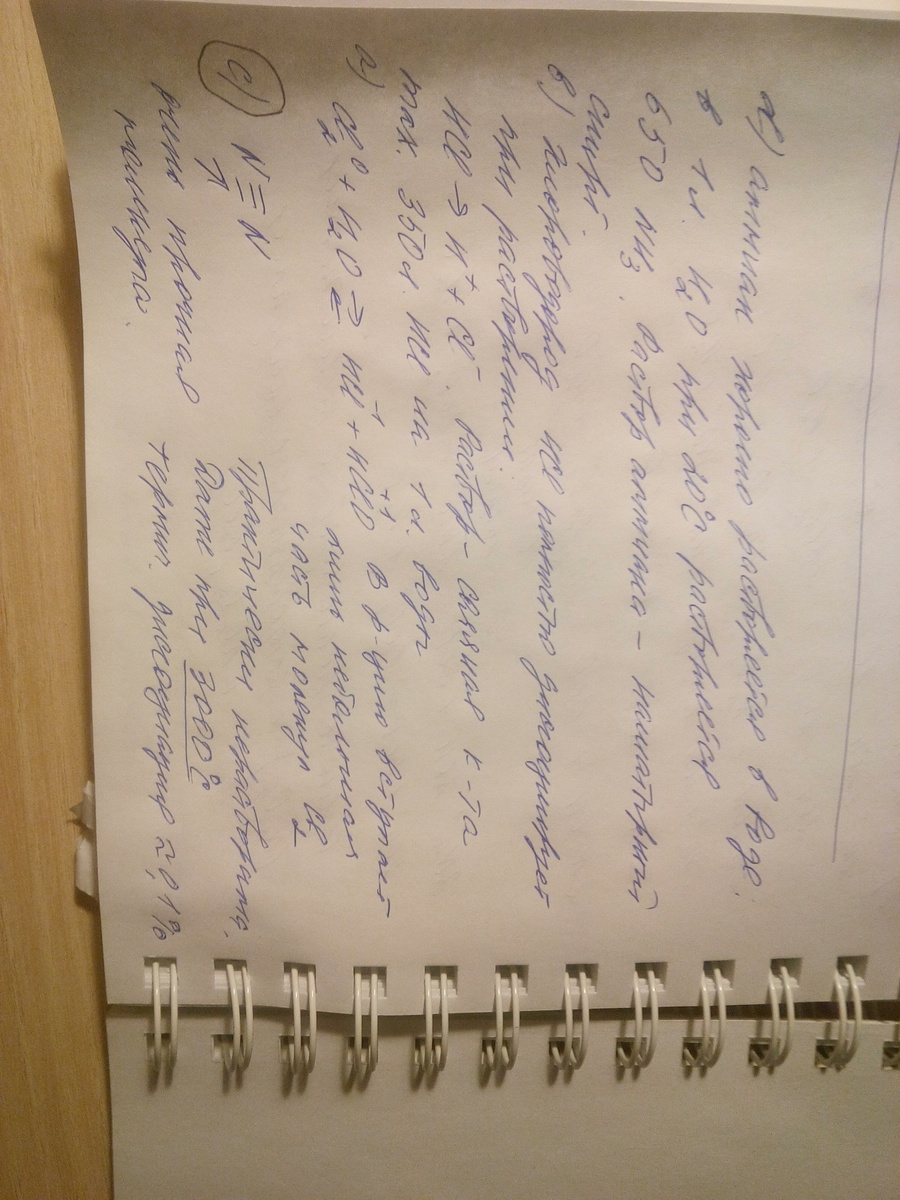 d) аммиак хорошо растворяется в воде.
в 1 л. H₂O при 20°C растворяется
650 NH₃. Раствор аммиака – нашатырный
спирт.
b) Хлороводород HCl полностью диссоциирует
при растворении.
HCl → H⁺ + Cl⁻. Раствор – соляная к-та
max. 350 л. HCl на 1 л. воды
a) Cl₂⁰ + H₂O ⇄ HCl⁻¹ + HClO⁺¹ В р-цию вступает
лишь небольшая
часть молекул Cl₂
c) N≡N Практически нерастворима.
↑
очень прочная Даже при 3000°
молекула. термич. диссоциация ≈ 0,1%